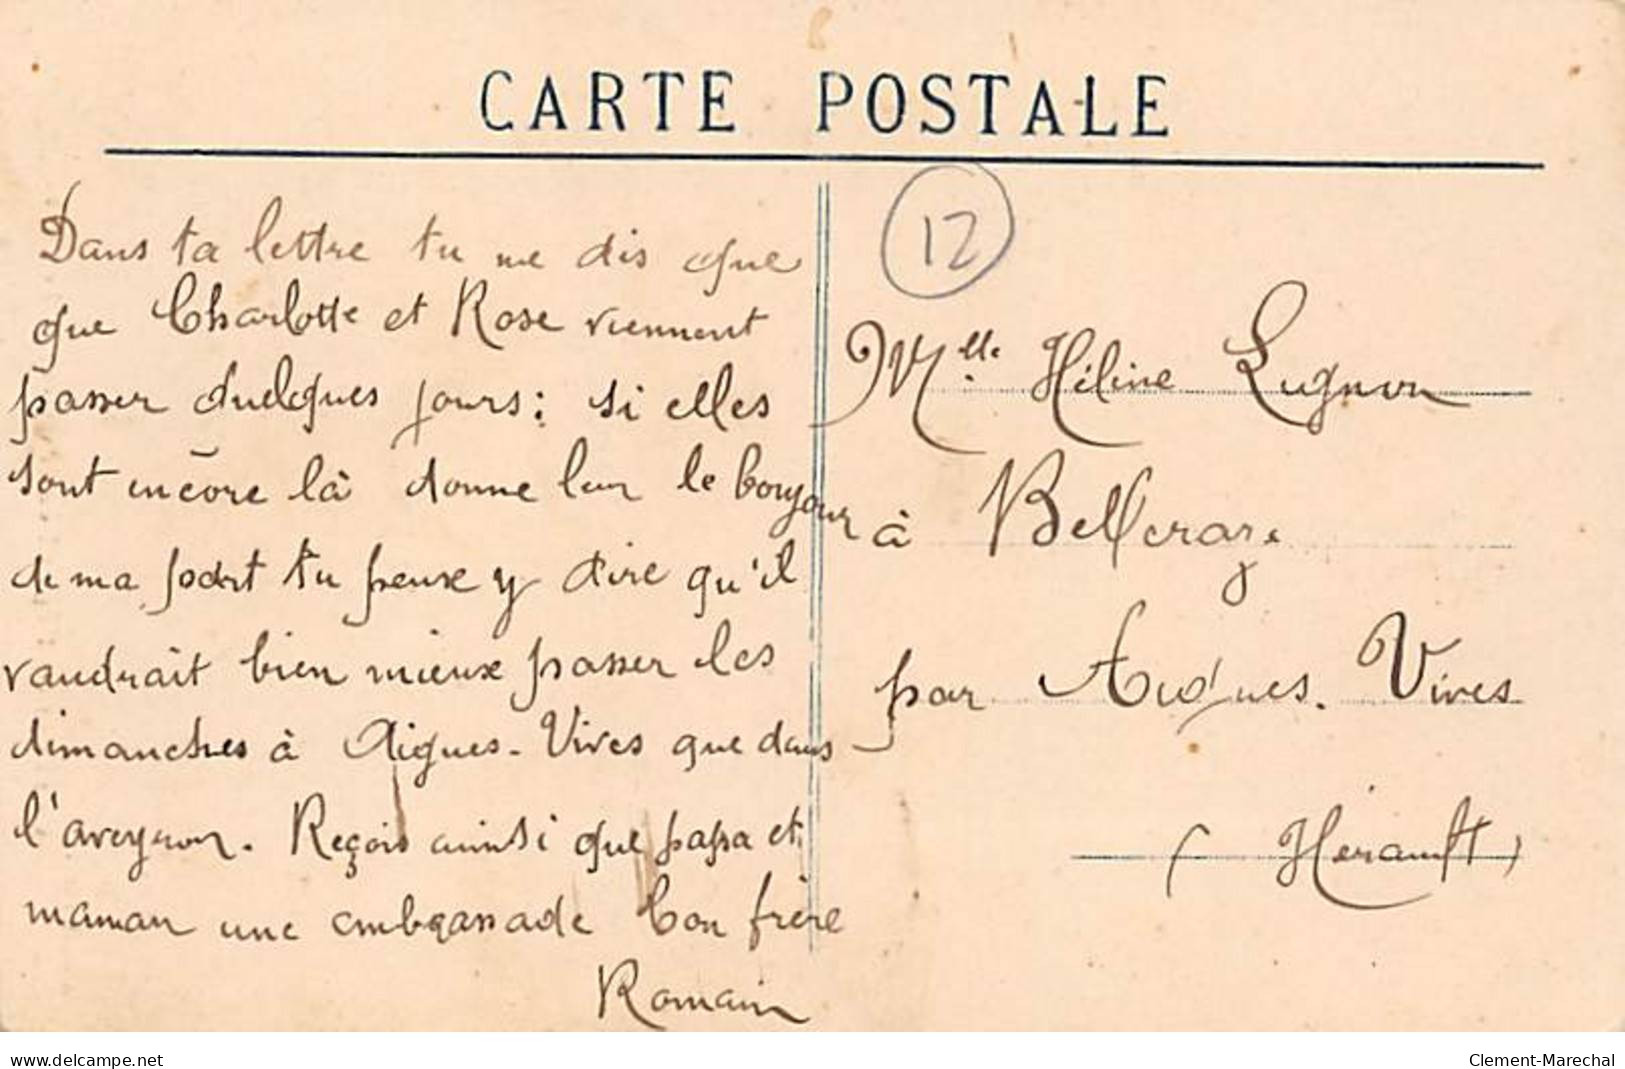 CARTE POSTALE
12
Dans ta lettre tu me dis que
que Charlotte et Rose viennent
passer quelques jours: si elles
sont encore là donne leur le bonjour
de ma part tu peux y dire qu'il
vaudrait bien mieux passer les
dimanches à Aigues-Vives que dans
l'aveyron. Reçois ainsi que papa et
maman une embrassade Ton frère
Romain
Mlle. Héline Lugnon
à
par Aigues. Vives
(Hérault)
www.delcampe.net
Clement-Marechal